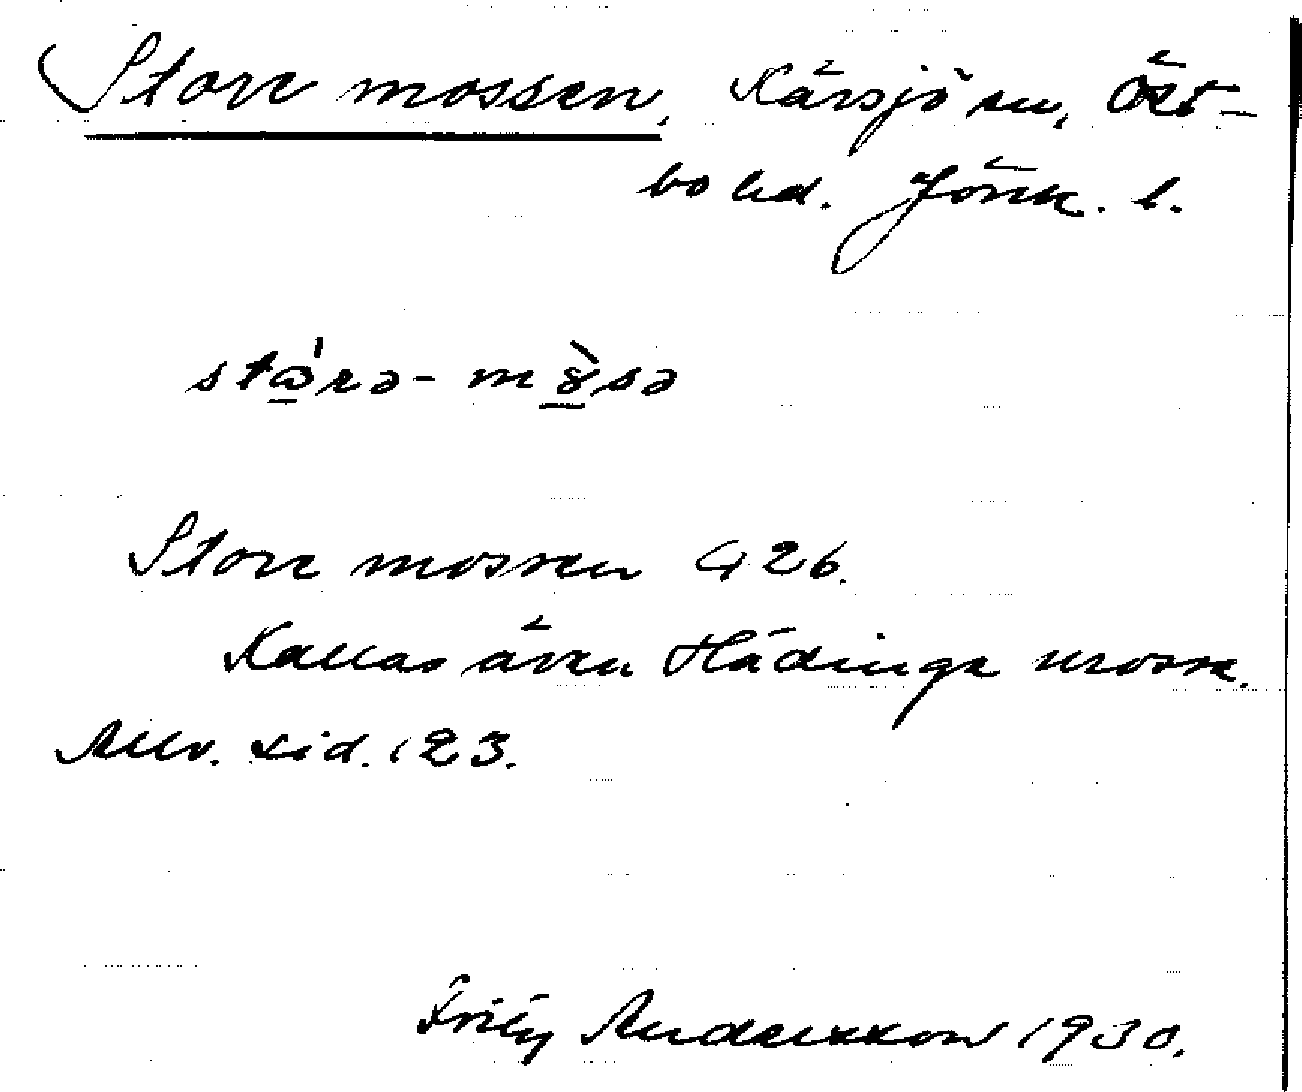 Store mossen, Kärsjö sn, Öst-
bo hd. Jönk. l.
stꞷ́rə- mɤ̀sə
Store mossen G 26.
Kallas även Hådinge mosse.
Allv. sid. 123.
Fritz Andersson 1930.